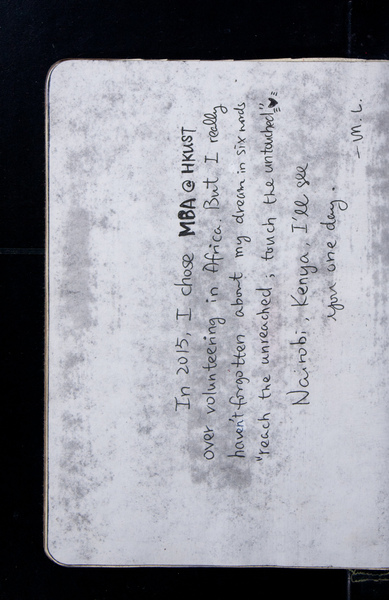 In 2015, I chose MBA @ HKUST
over volunteering in Africa. But I really
haven't forgotten about my dream in six words
"reach the unreached; touch the untouched" ♥
Nairobi, Kenya, I'll see
you one day.
- M. L.